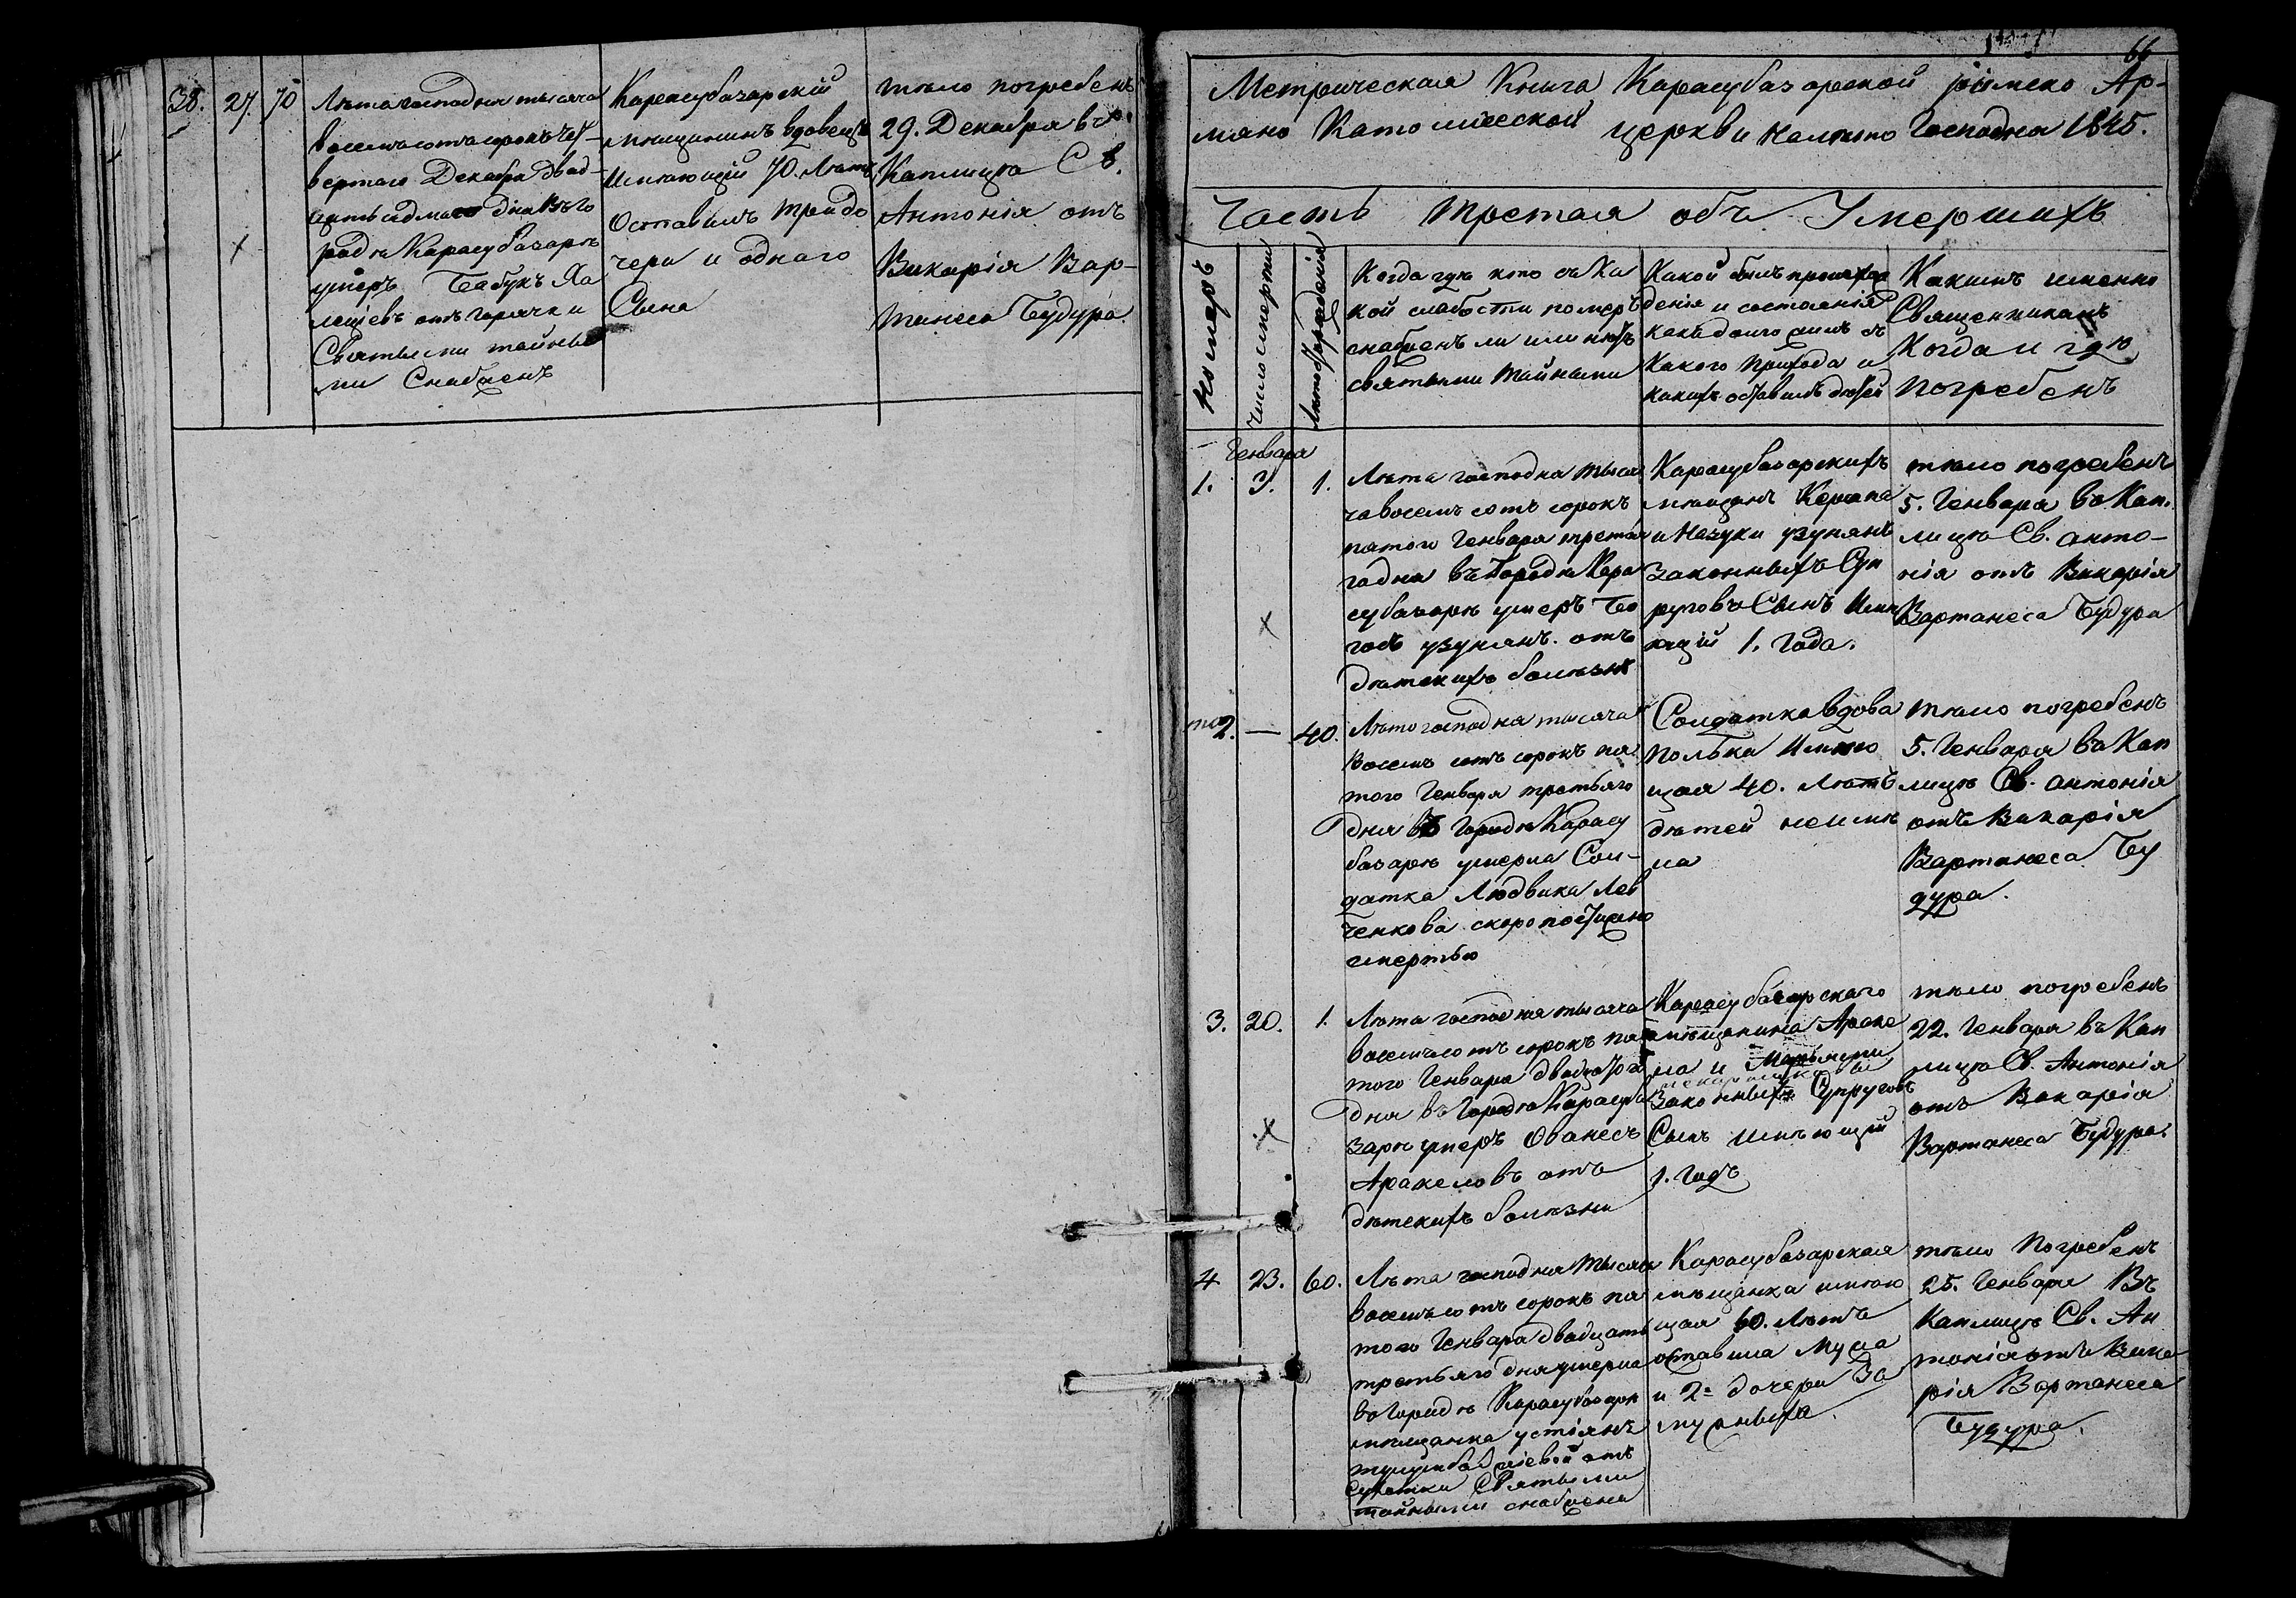 38. 27. 70
Лѣта господня тысяча
восемьсотъ сорокъ чет-
вертаго Декабря двад-
цать седмаго дня въ го
родѣ Карасубазарѣ
умеръ
лещіевъ отъ горячки
Святыми тайны
ми Снабденъ
Карасубазарскій
мѣщанинъ вдовецъ
Имѣющій 70. Лѣтъ
Оставилъ три до
чери и однаго
Сына
тѣло погребенъ
29. Декабря въ
Каплицѣ Св.
Антонія отъ
Викарія Вар-
танеса Будура.
66
Метрическая Книга Карасубазарской римско Ар-
мяно Католической церкви на лѣто Господня 1845.
Часть третая объ Умершихъ
Номеръ
Число смерти
Лѣто отъ рожденія
Когда гдѣ кто съ Ка
кой слабости померъ
снабденъ ли или нѣтъ
святыми тайнами
Какой былъ происхож
денія и состоянія
какъ долго жилъ съ
Какого прихода и
какихъ оставилъ дѣтей
Какимъ именно
Священникамъ
Когда и гдѣ
погребенъ
Генваря
1. 3. 1.
Лѣта господня тыся
ча восемь сотъ сорокъ
пятого Генваря третія
го дня въ Городѣ Кара
субазарѣ умеръ Бо
гось узунянъ. отъ
дѣтскихъ болѣзнѣ
Карасубазарскихъ
мѣщанъ
и узунянъ
законныхъ Суп
руговъ Сынъ Имѣ
ющій 1. года.
тѣло погребенъ
5. Генваря въ Кап.
лицѣ Св. анто-
нія отъ Викарія
Вартанеса Будура
2. — 40.
Лѣто господня тысяча
восемь сотъ сорокъ пя
того Генваря третьяго
дня въ Городѣ Карасу
базарѣ умерла Сол-
датка Людвика Лев
ченкова скоропостижно
смертью
Солдатка вдова
полька Имѣю
щая 40. лѣтъ
дѣтей неимѣ
ла
тѣло погребенъ
5. Генваря въ Кап
лицѣ Св. антонія
отъ Викарія
Вартанеса Бу
дура.
3. 20. 1.
Лѣта господня тысяча
восемьсотъ сорокъ пя
того Генваря двадцатаго
дня въ Городѣ Карасуба
зарѣ умеръ Ованесъ
Аракеловъ отъ
дѣтскихъ болѣзни
Карасубазарскаго
мѣщанина Араке
ла и
Законныхъ Супруговъ
Сынъ имѣющій
1. годъ
тѣло погребенъ
22. Генваря въ Кап
лицѣ Св. Антонія
отъ Викарія
Вартанеса Будура.
4 23. 60.
Лѣта господня тысяча
восемьсотъ сорокъ пя
того Генваря двадцать
третьяго дня умерла
въ Городѣ Карасубазарѣ
мѣщанка устіянъ
отъ
Святыми
тайными снабдена
Карасубазарская
мѣщанка имѣю
щая 60. лѣтъ
оставила Мужа
и 2. дочери За
мужныхъ.
тѣло Погребенъ
25. Генваря Въ
Каплицѣ Св. Ан
тонія отъ Вика
рія Вартанеса
Будура.